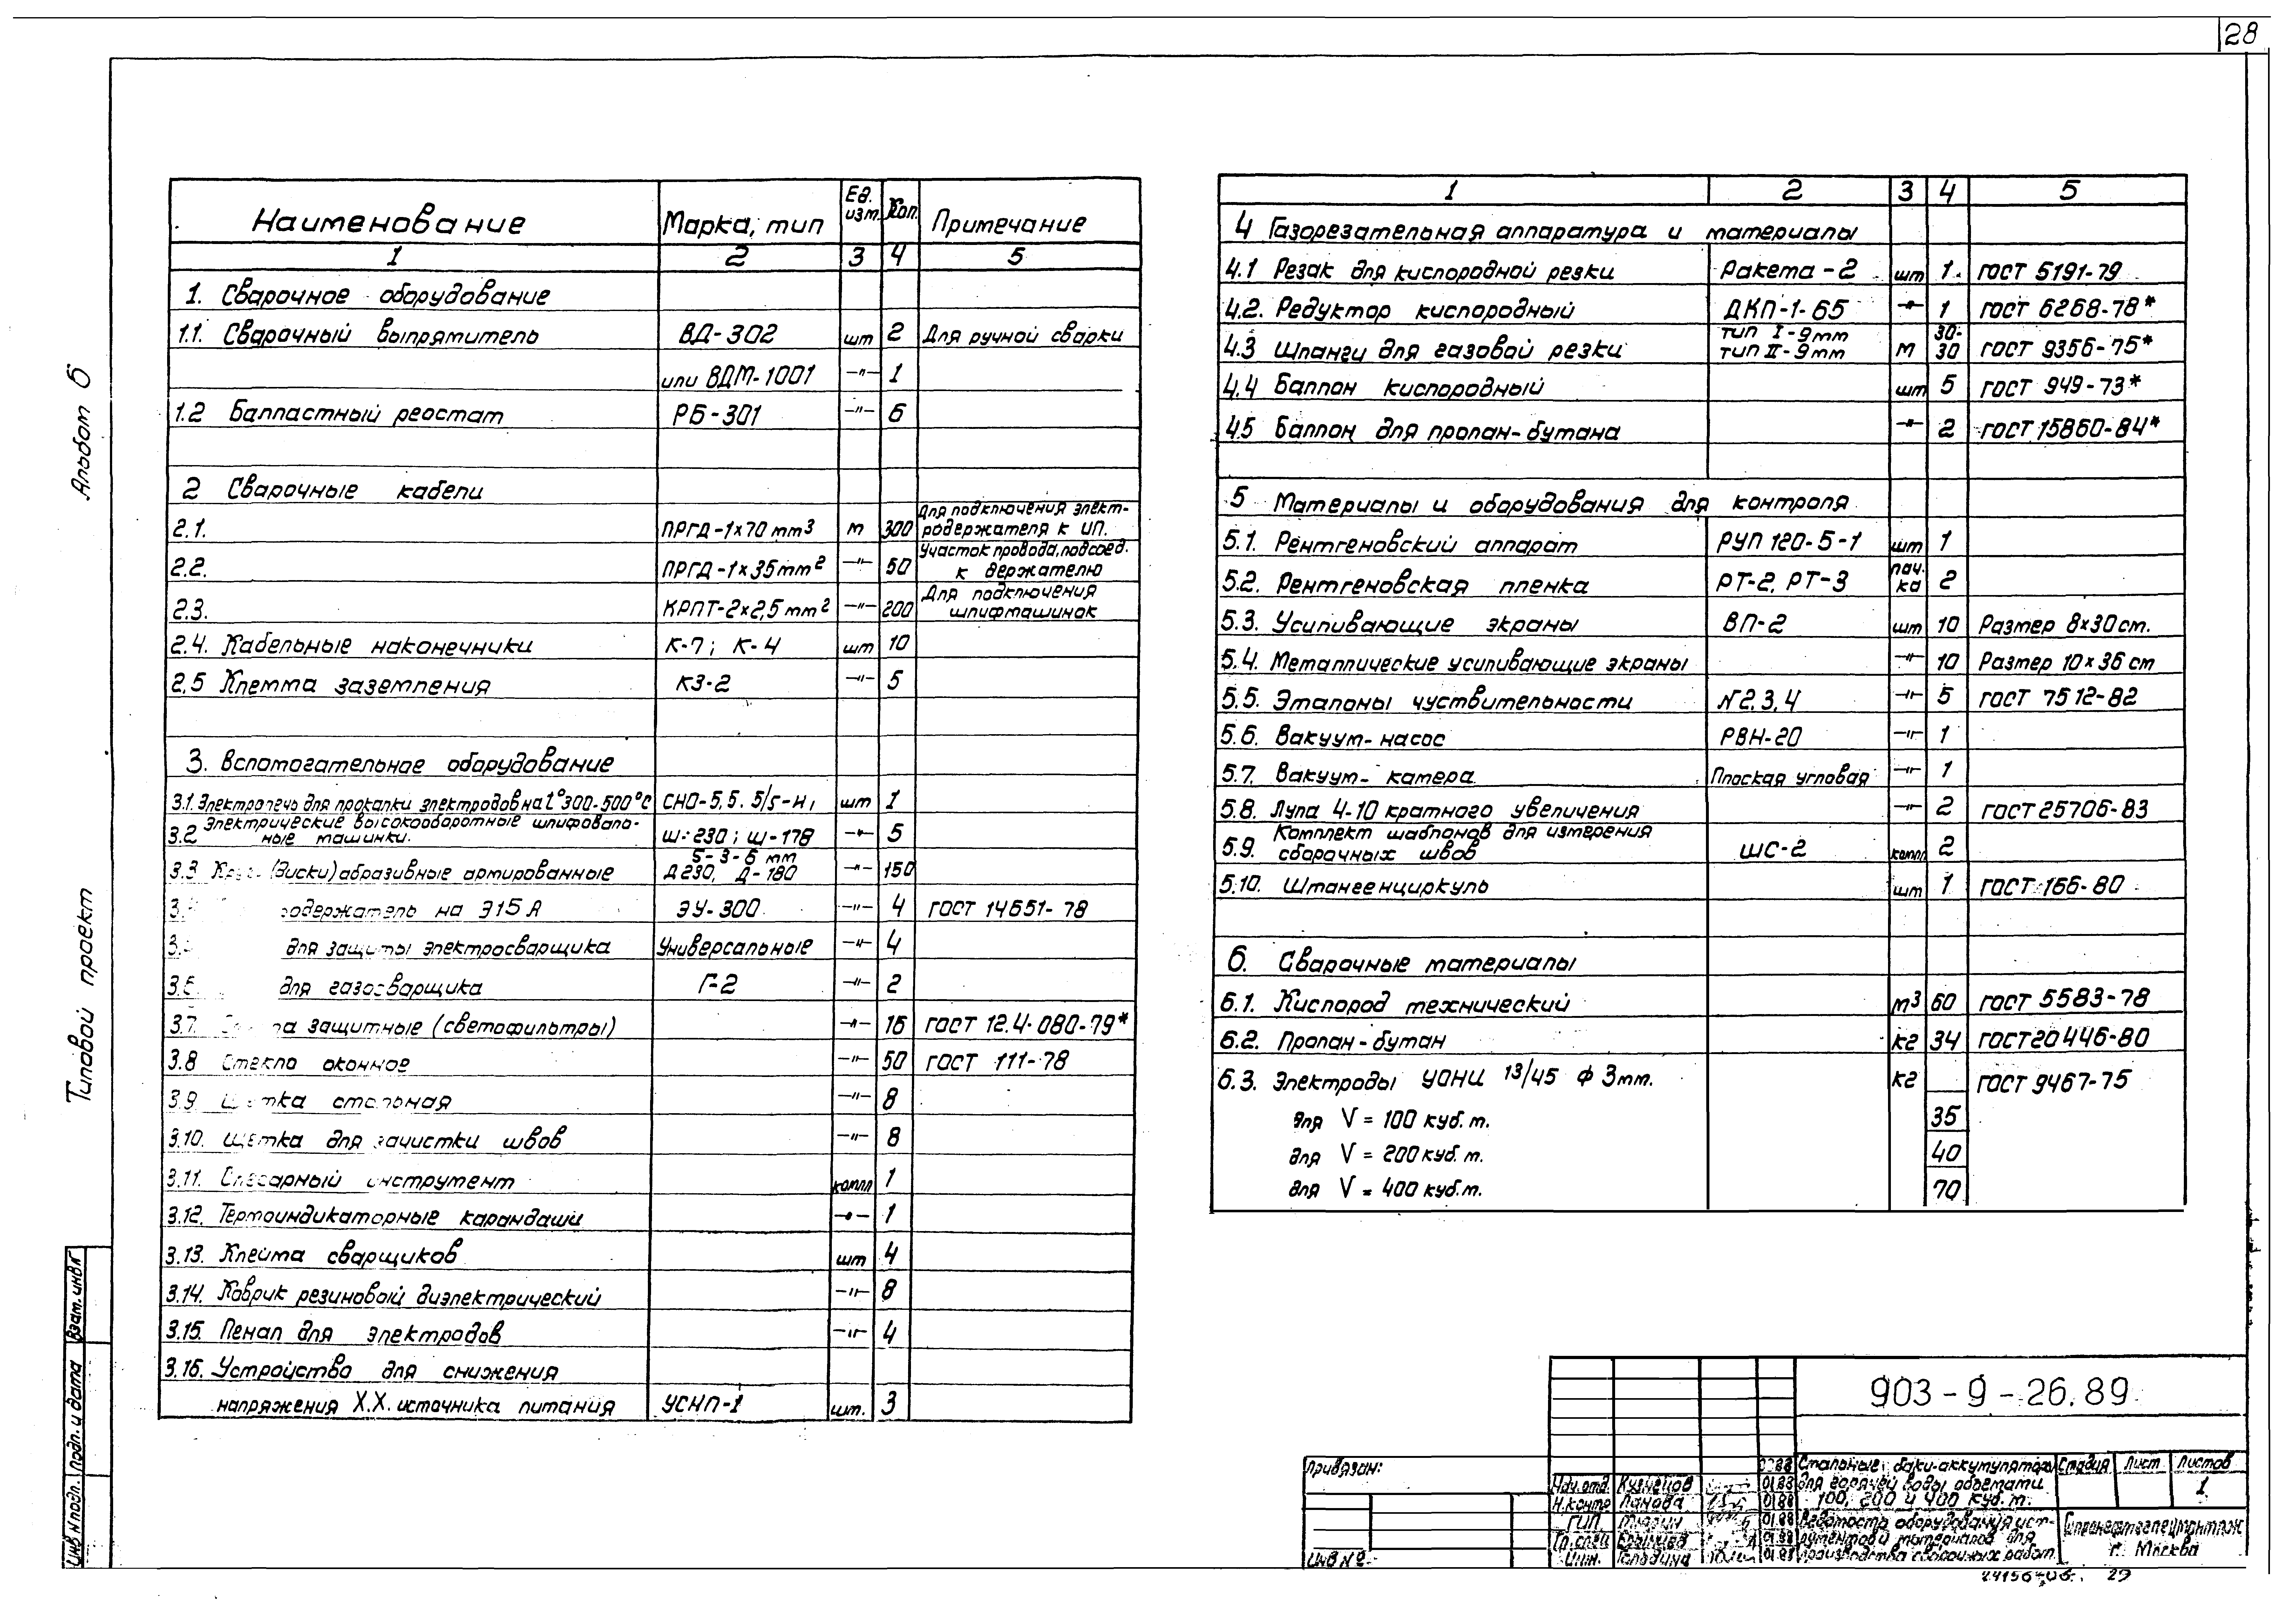 28
Альбом 6
Типовой проект
Наименование Марка, тип Ед. изм. Кол. Примечание
1 2 3 4 5
1. Сварочное оборудование
1.1. Сварочный выпрямитель ВД-302 шт 2 Для ручной сварки
или ВДМ-1001 —"— 1
1.2 Балластный реостат РБ-301 —"— 6
2 Сварочные кабели
2.1. ПРГД-1×70 мм³ м 300 Для подключения элект-
родержателя к ИП.
2.2. ПРГД-1×35 мм² —"— 50 Участок провода, подсоед.
к держателю
2.3. КРПТ-2×2,5 мм² —"— 200 Для подключения
шлифмашинок
2.4. Кабельные наконечники К-7; К-4 шт 10
2.5 Клемма заземления КЗ-2 —"— 5
3. Вспомогательное оборудование
3.1. Электропечь для прокалки электродов на t°300-500°С СНО-5,5. 5/5-И1 шт 1
3.2 Электрические высокооборотные шлифоваль-
ные машинки. Ш-230; Ш-178 —"— 5
3.3 (диски) абразивные армированные 5-3-6 мм
Д230, Д-180 —"— 150
одержатель на 315 А ЭУ-300 —"— 4 ГОСТ 14651-78
для защиты электросварщика Универсальные —"— 4
3.6 для газосварщика Г-2 —"— 2
3.7. защитные (светофильтры) —"— 16 ГОСТ 12.4.080-79*
3.8 Стекло оконное —"— 50 ГОСТ 111-78
3.9 Щетка стальная —"— 8
3.10. Щетка для зачистки швов —"— 8
3.11. Слесарный инструмент компл 1
3.12. Термоиндикаторные карандаши —"— 1
3.13. Клейма сварщиков шт 4
3.14. Коврик резиновый диэлектрический —"— 8
3.15. Пенал для электродов —"— 4
3.16. Устройство для снижения
напряжения Х.Х. источника питания УСНП-1 шт. 3
1 2 3 4 5
4 Газорезательная аппаратура и материалы
4.1 Резак для кислородной резки Ракета-2 шт 1. ГОСТ 5191-79
4.2. Редуктор кислородный ДКП-1-65 —"— 1 ГОСТ 6268-78*
4.3 Шланги для газовой резки тип I-9мм
тип II-9мм м 30-
30 ГОСТ 9356-75*
4.4 Баллон кислородный шт 5 ГОСТ 949-73*
4.5 Баллон для пропан-бутана —"— 2 ГОСТ 15860-84*
5 Материалы и оборудования для контроля
5.1. Рентгеновский аппарат РУП 120-5-1 шт 1
5.2. Рентгеновская пленка РТ-2, РТ-3 пач.
ка 2
5.3. Усиливающие экраны ВП-2 шт 10 Размер 8×30 см.
5.4. Металлические усиливающие экраны —"— 10 Размер 10×36 см
5.5. Эталоны чуствительности №2,3,4 —"— 5 ГОСТ 7512-82
5.6. Вакуум-насос РВН-20 —"— 1
5.7. Вакуум-камера Плоская угловая —"— 1
5.8. Лупа 4-10 кратного увеличения —"— 2 ГОСТ 25706-83
5.9. Комплект шаблонов для измерения
сварочных швов ШС-2 компл 2
5.10. Штангенциркуль шт 1 ГОСТ 166-80
6. Сварочные материалы
6.1. Кислород технический м³ 60 ГОСТ 5583-78
6.2. Пропан-бутан кг 34 ГОСТ 20446-80
6.3. Электроды УОНИ 13/45 Ф 3мм. кг ГОСТ 9467-75
для V = 100 куб.м. 35
для V = 200 куб.м. 40
для V = 400 куб.м. 70
Взам. инв №
Подп. и дата
Инв № подл.
903-9-26.89
Привязан:
Инв №
Нач.отд. Кузнецов 01.88
Н.контр Панова 01.88
ГИП 01.88
Гл.спец 01.88
Инж. Голодина 01.88
Стальные баки-аккумуляторы
для горячей воды объемами
100, 200 и 400 куб.м.
Ведомость оборудования, инс-
трументов и материалов для
производства сварочных работ
Стадия Лист Листов
1
Гипронефтеспецмонтаж
г. Москва
24156-06. 29